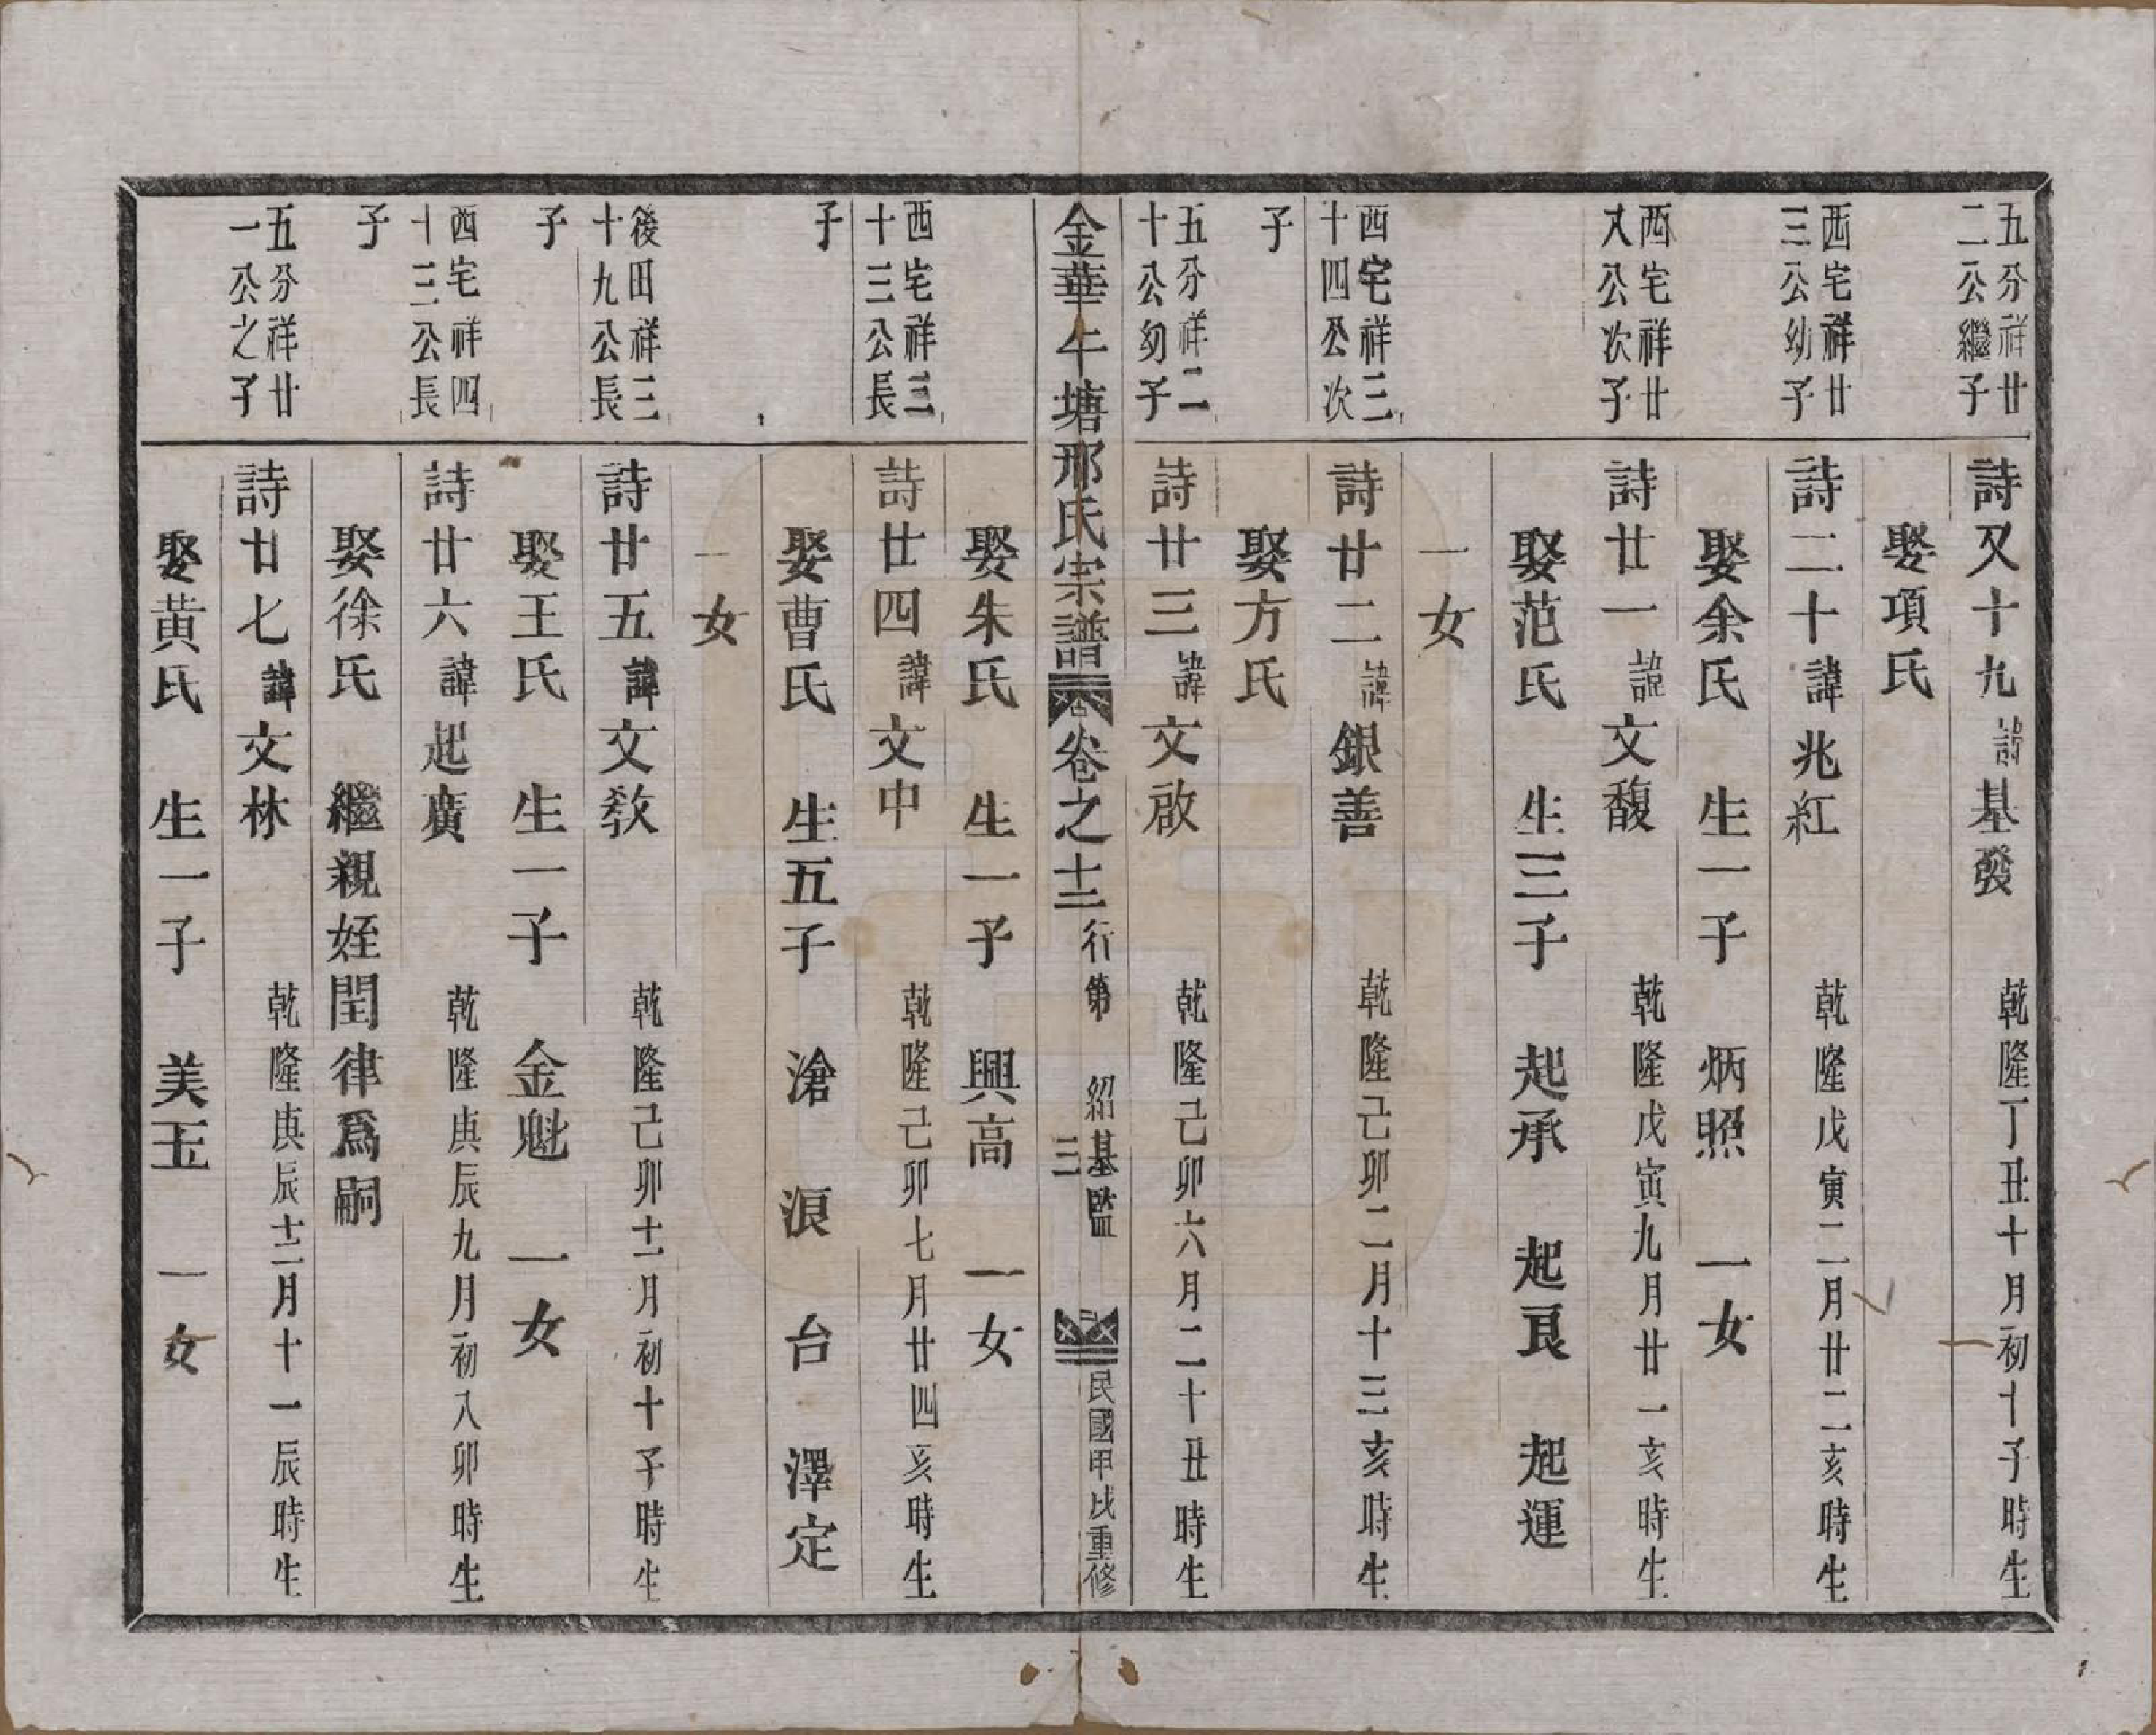 五分祥廿
二公繼子
詩又十九諱基發 乾隆丁丑十月初十子時生
娶項氏
西宅祥廿
三公幼子
詩二十諱兆紅 乾隆戊寅二月廿二亥時生
娶余氏 生一子 炳照 一女
西宅祥廿
又公次子
詩廿一諱文馥 乾隆戊寅九月廿一亥時生
娶范氏 生三子 起承 起良 起運
一女
西宅祥三
十四公次
子
詩廿二諱銀善 乾隆己卯二月十三亥時生
娶方氏
五分祥二
十公幼子
詩廿三諱文啟 乾隆己卯六月二十丑時生
金華午塘邢氏宗譜 卷之十二 行第 紹基監 三 民國甲戌重修
娶朱氏 生一子 興高 一女
西宅祥三
十三公長
子
詩廿四諱文中 乾隆己卯七月廿四亥時生
娶曹氏 生五子 滄 浪 台 澤定
一女
後田祥三
十九公長
子
詩廿五諱文教 乾隆己卯十二月初十子時生
娶王氏 生一子 金魁 一女
西宅祥四
十三公長
子
詩廿六諱起廣 乾隆庚辰九月初八卯時生
娶徐氏 繼親姪閏律爲嗣
五分祥廿
一公之子
詩廿七諱文林 乾隆庚辰十二月十一辰時生
娶黄氏 生一子 美玉 一女